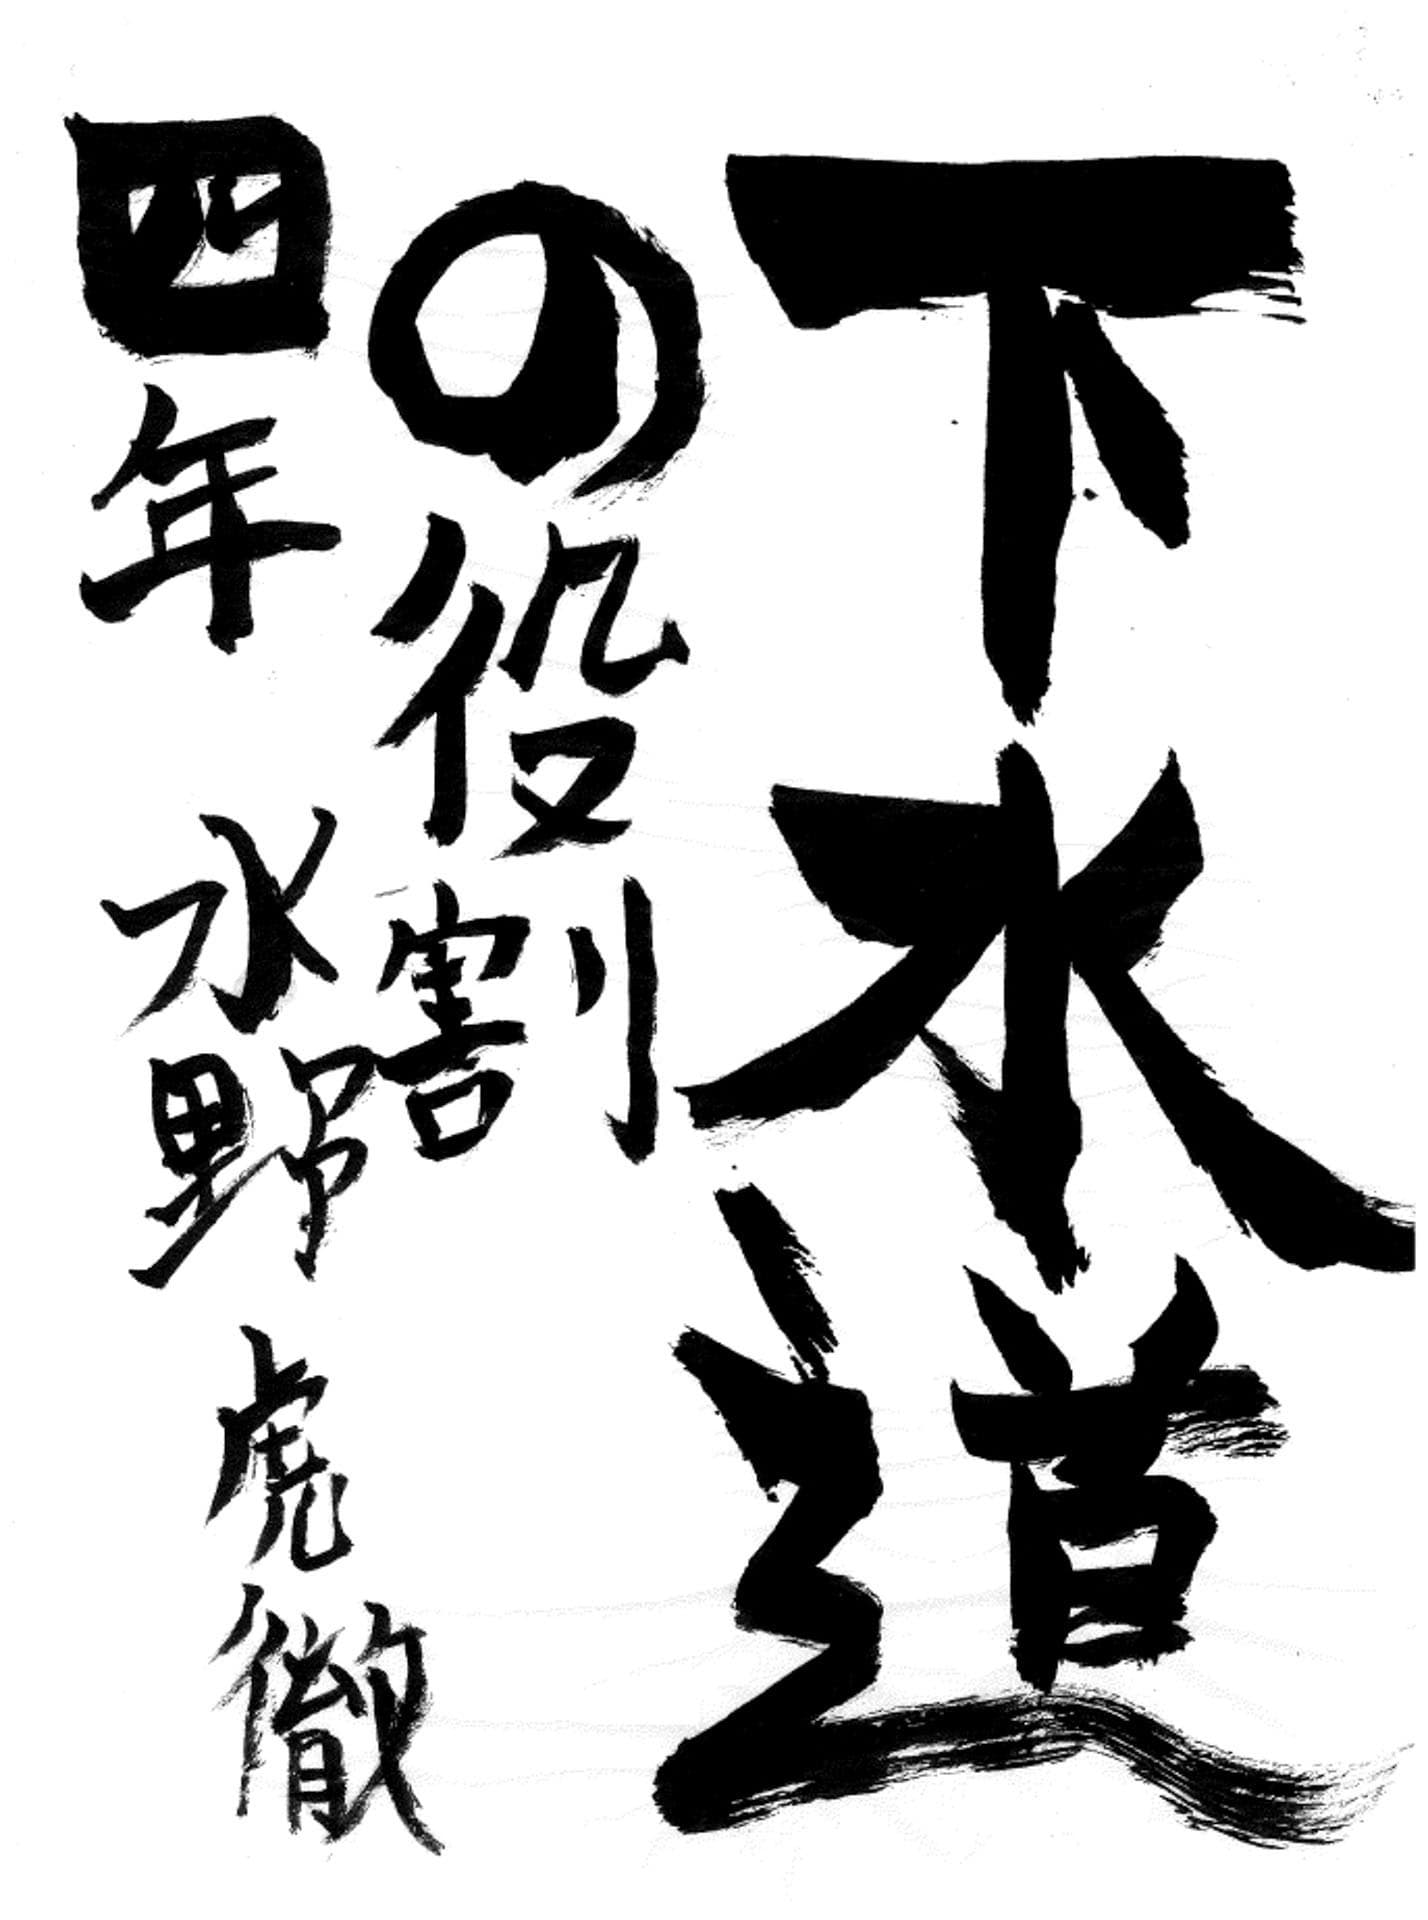 下水道
の役割
四年 水野虎徹